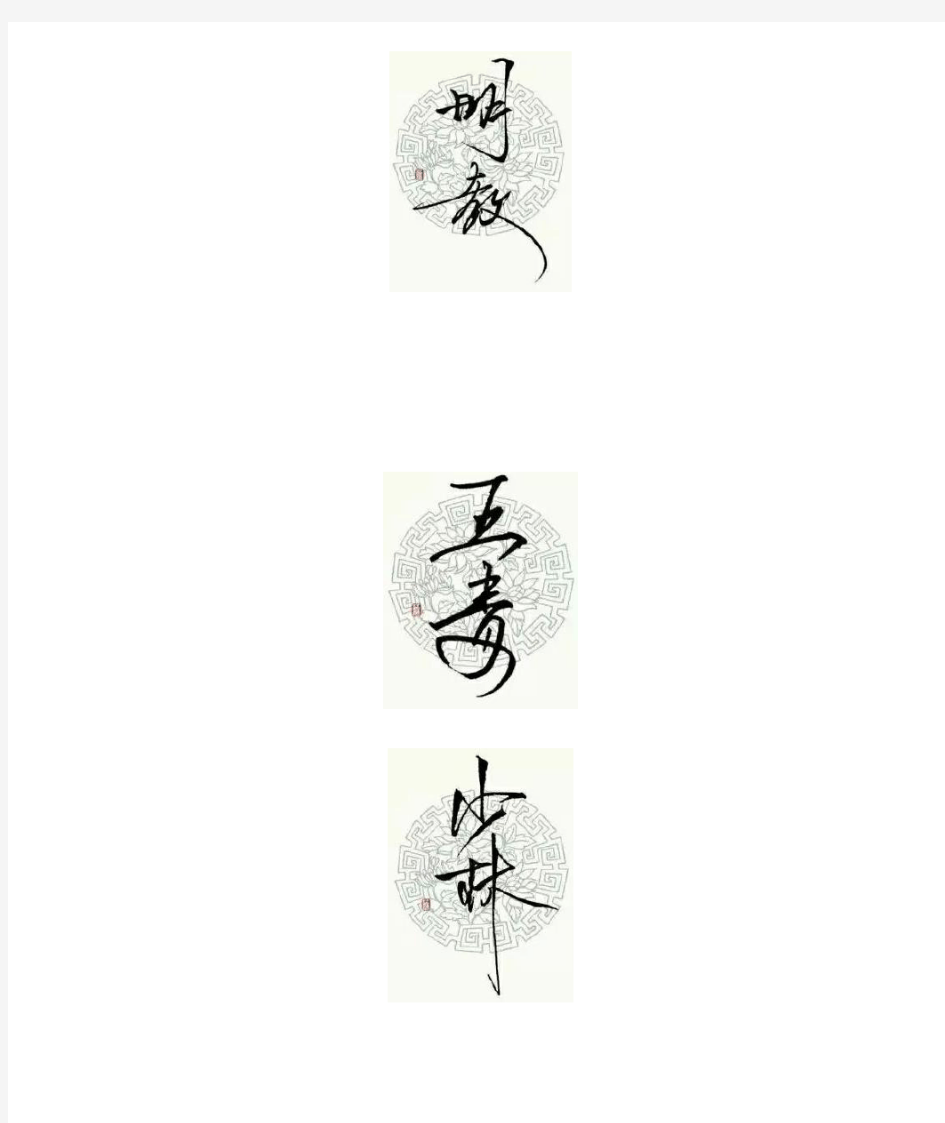 明教
五毒
少林